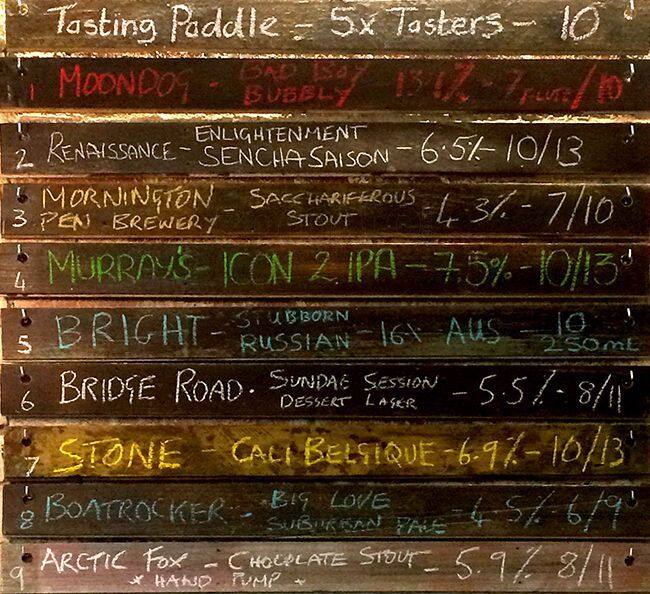 Tasting Paddle - 5x Tasters - 10
1 MOONDOG - BAD BOY BUBBLY 13.1% - 7 FLUTE/10
2 RENAISSANCE - ENLIGHTENMENT SENCHA SAISON - 6.5% - 10/13
3 MORNINGTON PEN BREWERY - SACCHARIFEROUS STOUT - 4.3% - 7/10
4 MURRAY'S - ICON 2 IPA - 7.5% - 10/13
5 BRIGHT - STUBBORN RUSSIAN - 16% AUS - 10 250ML
6 BRIDGE ROAD - SUNDAE SESSION DESSERT LAGER - 5.5% - 8/11
7 STONE - CALI BELGIQUE - 6.9% - 10/13
8 BOATROCKER - BIG LOVE SUBURBAN PALE - 4.5% - 6/9
9 ARCTIC FOX - CHOCOLATE STOUT - 5.9% 8/11
x HAND PUMP x